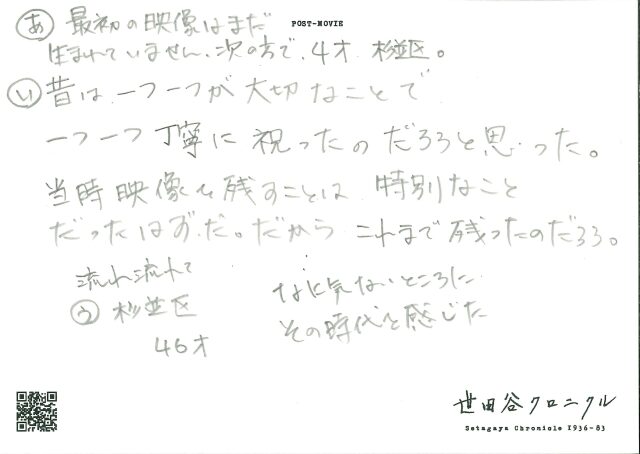 POST-MOVIE
あ 最初の映像はまだ
生まれていません、次の方で、4才 杉並区。
い 昔は、一つ一つが大切なことで
一つ一つ丁寧に祝ったのだろうと思った。
当時映像を残すことは、特別なこと
だったはずだ。だからこれまで残ったのだろう。
流れ流れて
う 杉並区
46才
なに気ないところに
その時代を感じた
世田谷クロニクル
Setagaya Chronicle 1936-83